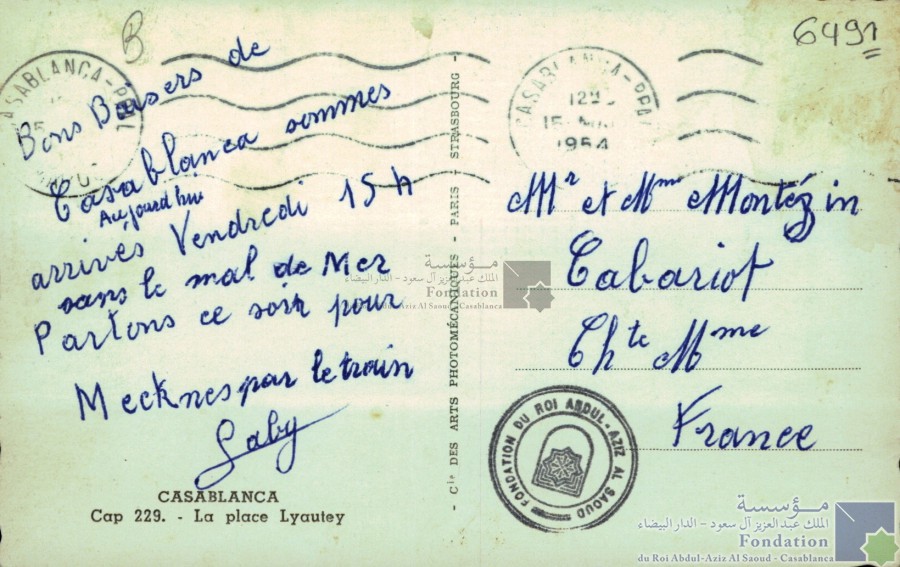 B
6491
Bons Baisers de
Casablanca sommes
Aujourd'hui
arrivés Vendredi 15 h
sans le mal de Mer
Partons ce soir pour
Mecknes par le train
Gaby
CASABLANCA
Cap 229. - La place Lyautey
- Cie DES ARTS PHOTOMÉCANIQUES - PARIS - STRASBOURG -
CASABLANCA-PPAL
CASABLANCA-PPAL
15
1954
Mr et Mme Montézin
Cabariot
Chte Mme
France
FONDATION DU ROI ABDUL-AZIZ AL SAOUD
مؤسسة
الملك عبد العزيز آل سعود - الدار البيضاء
Fondation
du Roi Abdul-Aziz Al Saoud - Casablanca
مؤسسة
الملك عبد العزيز آل سعود - الدار البيضاء
Fondation
du Roi Abdul-Aziz Al Saoud - Casablanca